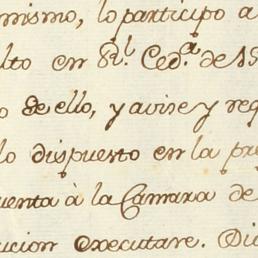 mismo, lo participo a
lto en Rl. Ced.a de 15
o de ello, y avise y req
lo dispuesto en la pre
uenta à la Camara de
ucion executare. Dio